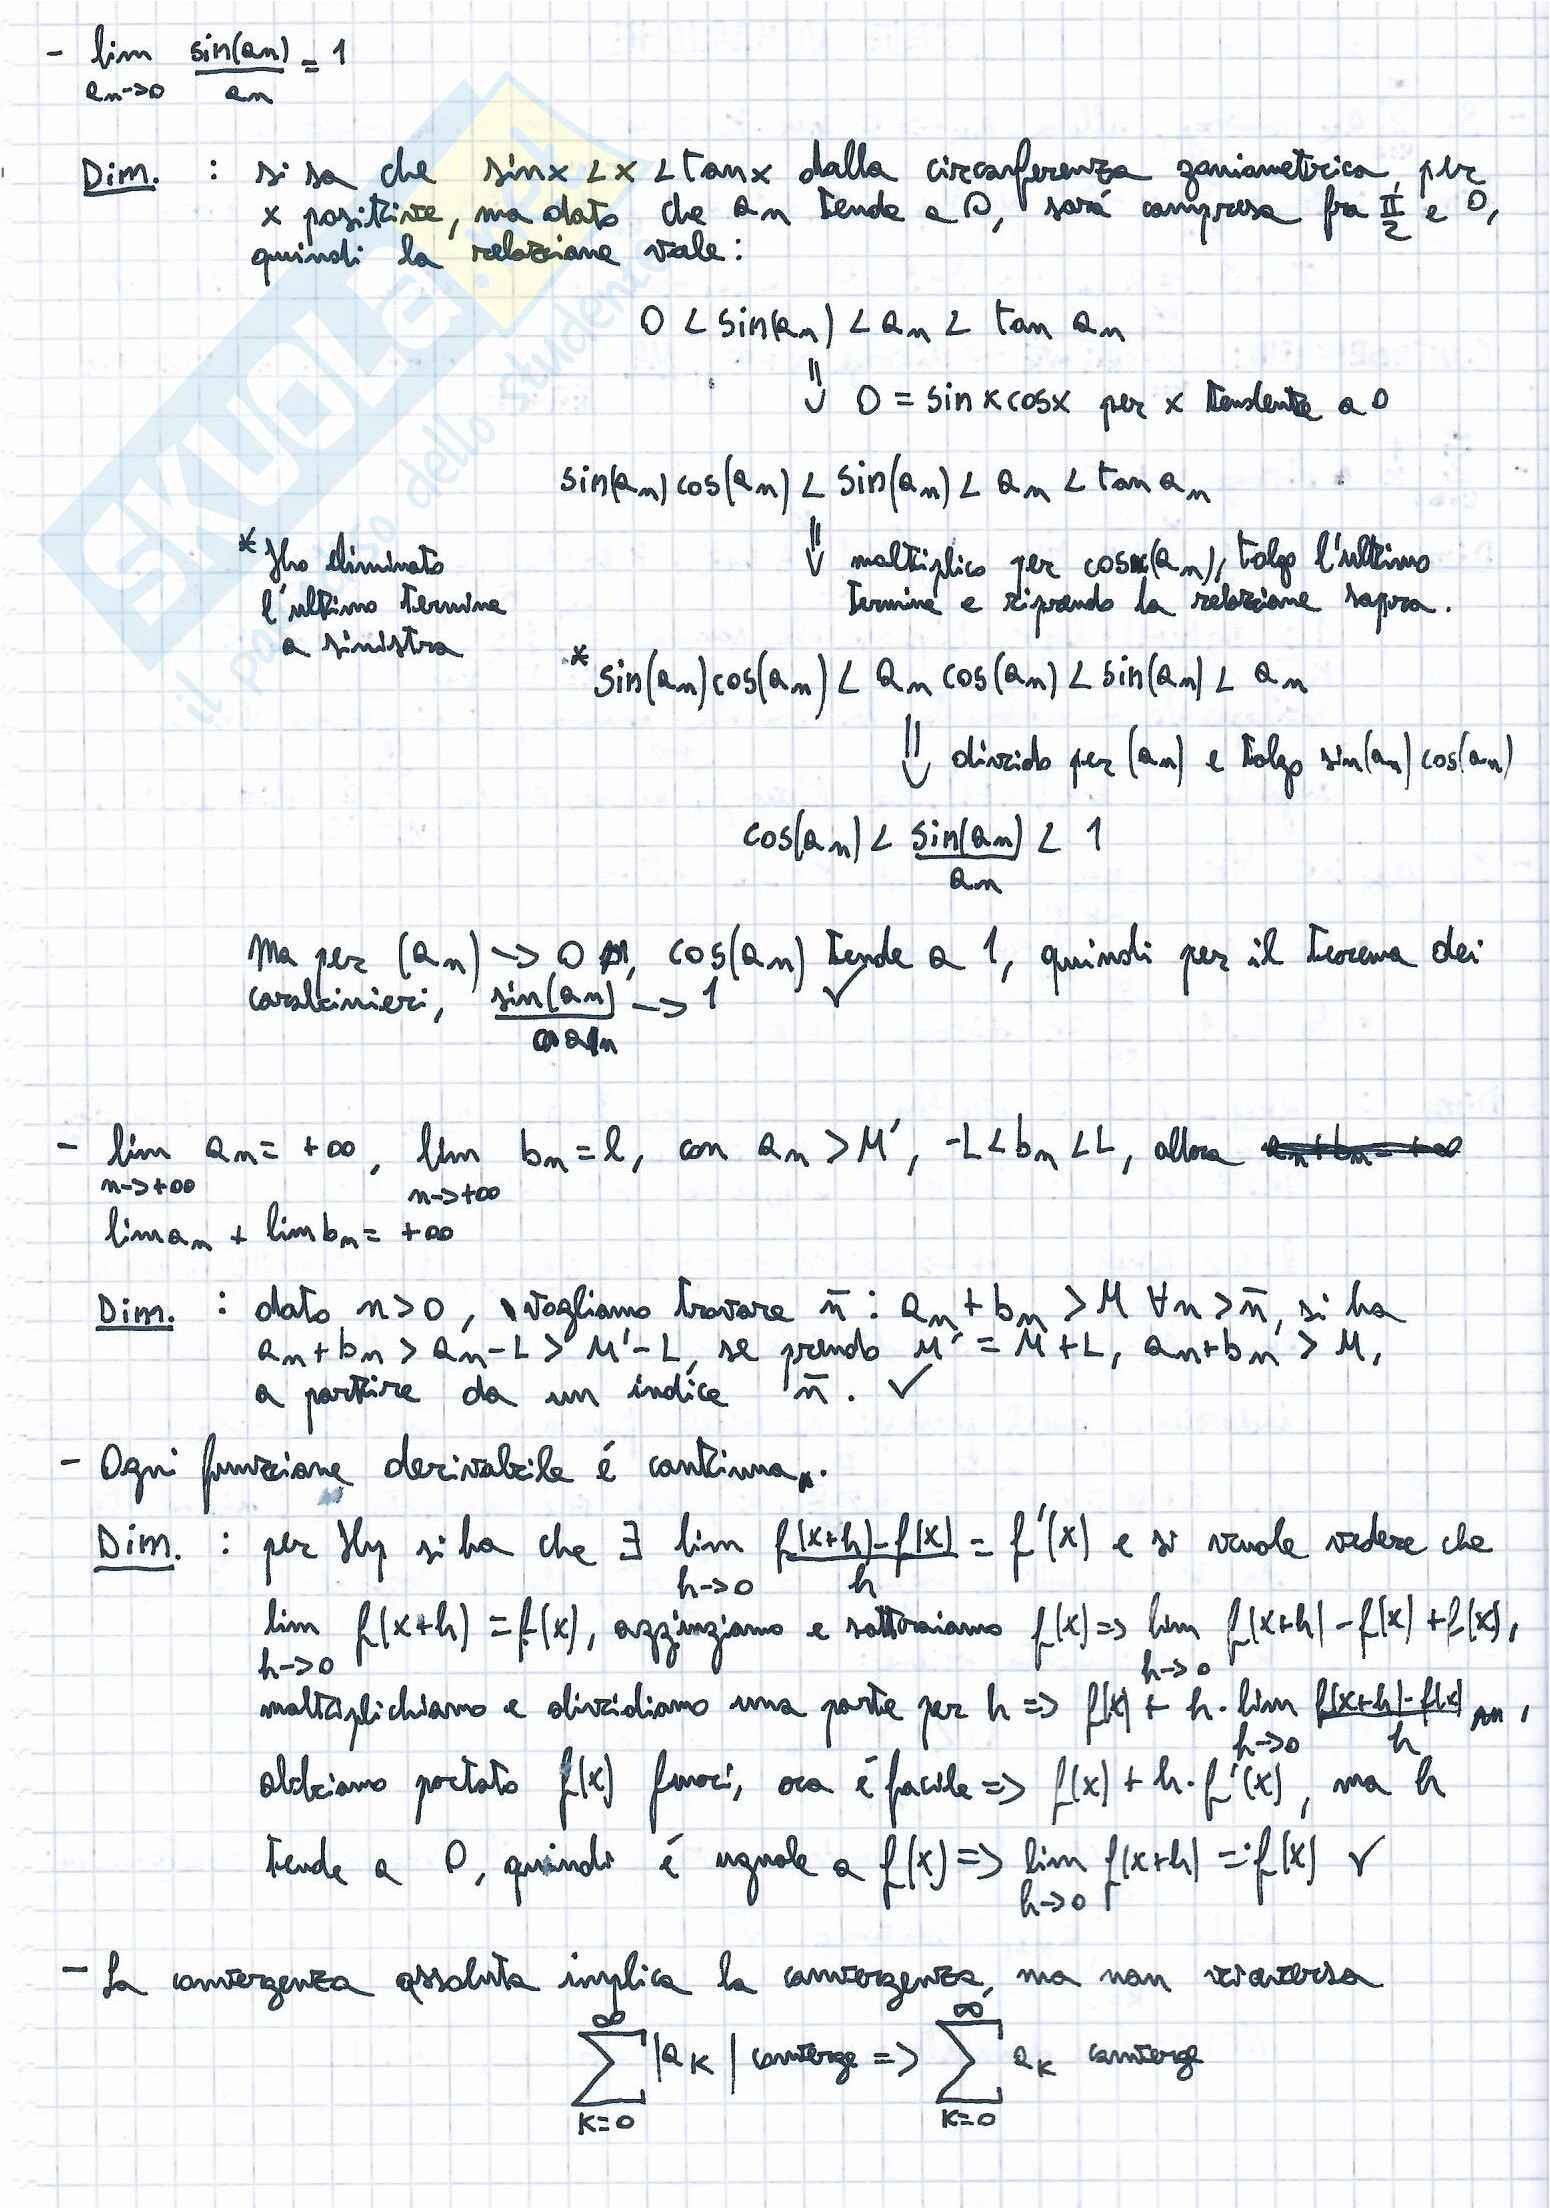 - lim sin(an) = 1
an->0 an
Dim. : si sa che sinx < x < tanx dalla circonferenza goniometrica, per
x positive, ma dato che an tende a 0, sará compresa fra π/2 e 0,
quindi la relazione vale:
0 < sin(an) < an < tan an
⇓ 0 = sinxcosx per x tendente a 0
sin(an)cos(an) < sin(an) < an < tan an
⇓ moltiplico per cos(an), tolgo l'ultimo
termine e riprendo la relazione sopra.
* Ho eliminato
l'ultimo termine
a sinistra
* sin(an)cos(an) < an cos(an) < sin(an) < an
⇓ divido per (an) e tolgo sin(an)cos(an)
cos(an) < sin(an) < 1
an
Ma per (an) -> 0, cos(an) tende a 1, quindi per il teorema dei
carabinieri, sin(an) -> 1 ✓
an
- lim an = +∞, lim bn = l, con an > M', -L < bn < L, allora an+bn = +∞
n->+∞ n->+∞
lim an + lim bn = +∞
Dim. : dato n>0, vogliamo trovare n̄ : an + bn > M ∀n > n̄, si ha
an + bn > an - L > M' - L, se prendo M' = M + L, an + bn > M,
a partire da un indice n̄. ✓
- Ogni funzione derivabile é continua.
Dim. : per Hy si ha che ∃ lim f(x+h)-f(x) = f'(x) e si vuole vedere che
h->0 h
lim f(x+h) = f(x), aggiungiamo e sottraiamo f(x) => lim f(x+h) - f(x) + f(x),
h->0 h->0
moltiplichiamo e dividiamo una parte per h => f(x) + h · lim f(x+h)-f(x) ,
h->0 h
abbiamo portato f(x) fuori, ora é facile => f(x) + h · f'(x), ma h
tende a 0, quindi é uguale a f(x) => lim f(x+h) = f(x) ✓
h->0
- La convergenza assoluta implica la convergenza, ma non viceversa
∞ ∞
∑ |aK| converge => ∑ aK converge
K=0 K=0
SKUOLA.net
il paradiso dello studente